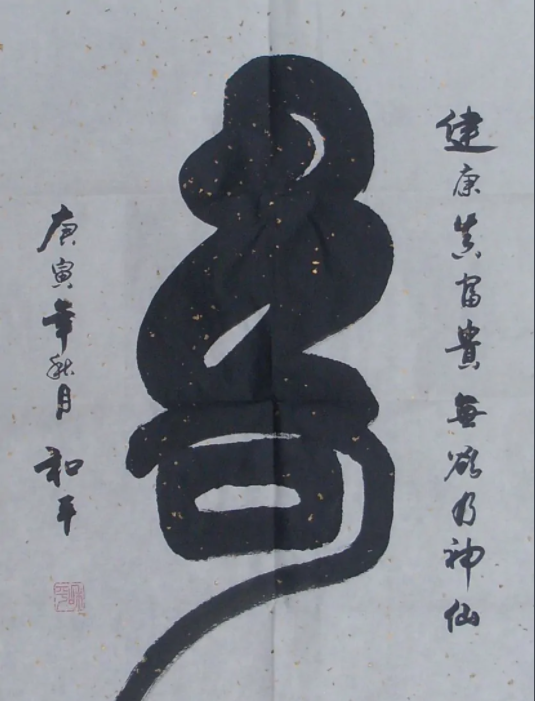 健康真富貴無欲乃神仙
壽
庚寅年秋月
和平